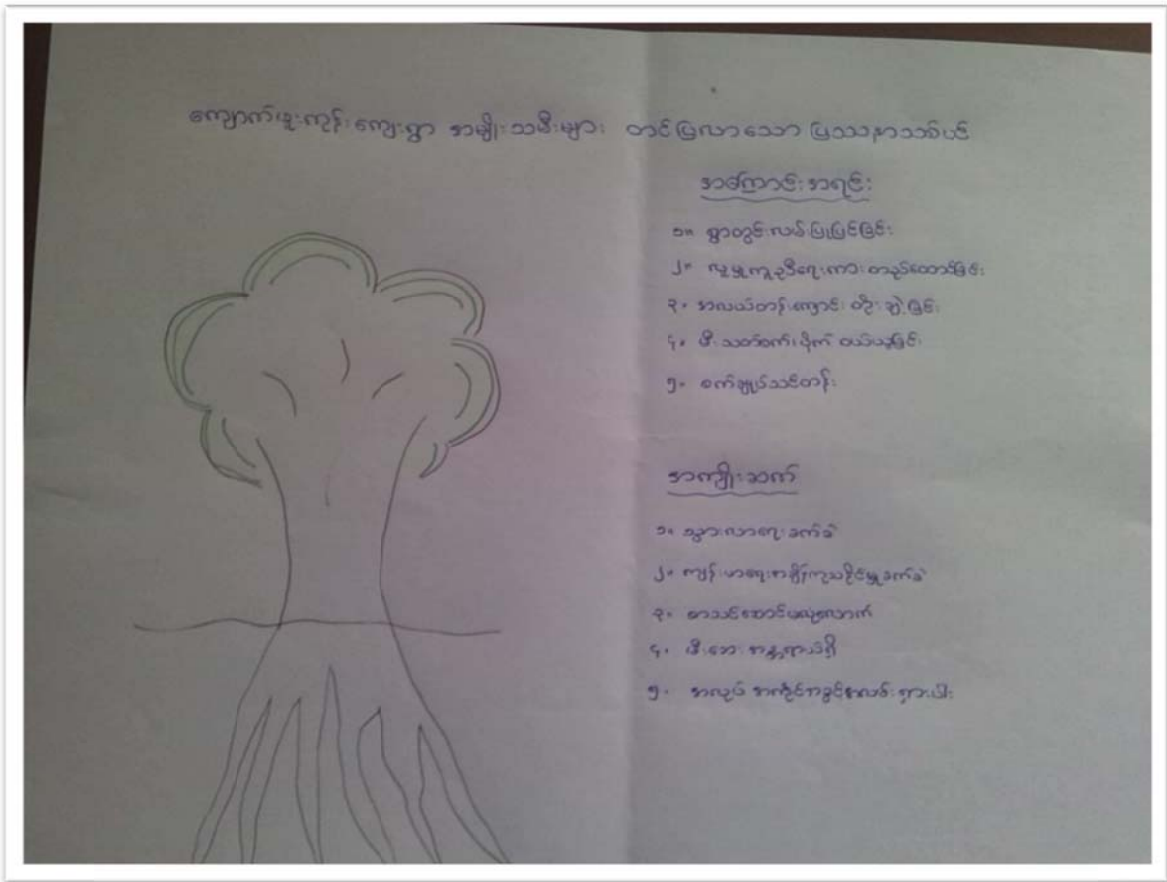 ကျောက်ဖူးကုန်းကျေးရွာ အမျိုးသမီးများ တင်ပြလာသော ပြဿနာသစ်ပင်
အကြောင်းအရင်း
၁။ ရွာတွင်းလမ်းပြုပြင်ခြင်း
၂။ လူမှုကူညီရေးကား တည်ထောင်ခြင်း
၃။ အလယ်တန်းကျောင်း တိုးချဲ့ခြင်း
၄။ မီးသတ်စက်၊ ပိုက် ဝယ်ယူခြင်း
၅။ စက်ချုပ်သင်တန်း
အကျိုးဆက်
၁။ သွားလာရေးခက်ခဲ
၂။ ကျန်းမာရေးအချိန်ကုသနိုင်မှုခက်ခဲ
၃။ စာသင်ဆောင်မလုံလောက်
၄။ မီးဘေးအန္တရာယ်ရှိ
၅။ အလုပ် အကိုင်အခွင့်အလမ်းရှားပါး